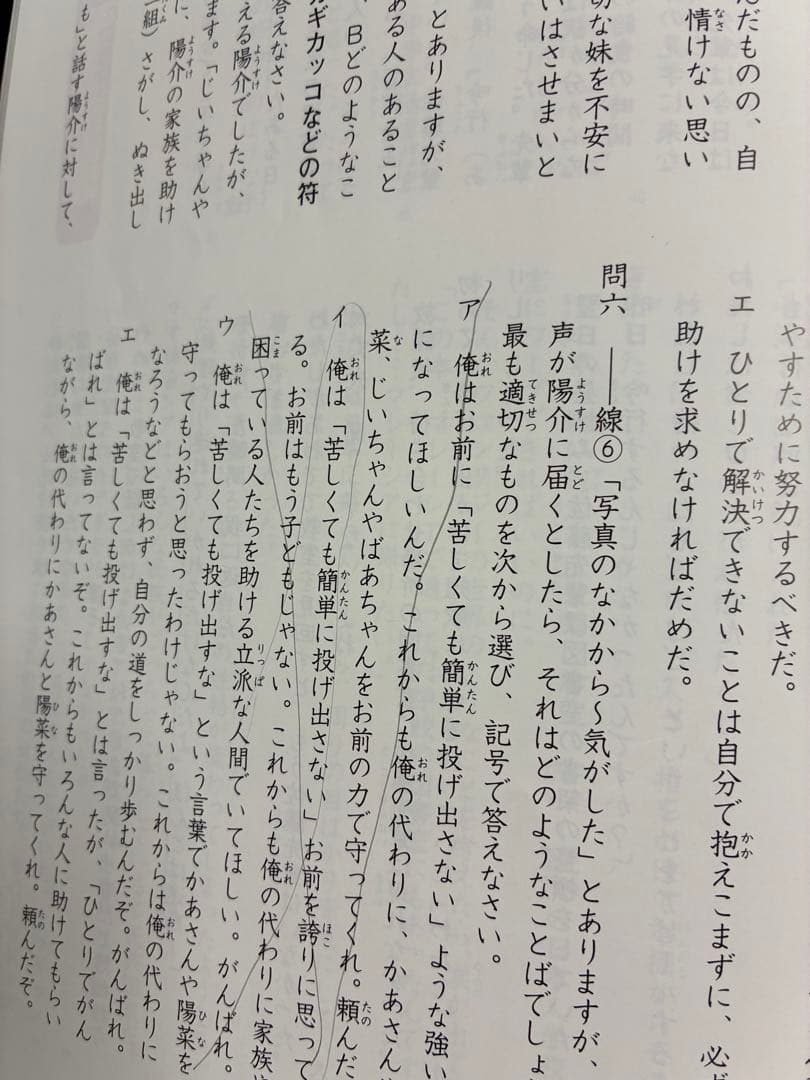 んだものの、自
情けない思い
切な妹を不安に
いはさせまいと
とありますが、
ある人のあること
、Bどのようなこ
カギカッコなどの符
答えなさい。
える陽介でしたが、
ます。「じいちゃんや
に、陽介の家族を助け
一組）さがし、ぬき出し
も」と話す陽介に対して、
やすために努力するべきだ。
エ ひとりで解決できないことは自分で抱えこまずに、必ず
助けを求めなければだめだ。
問六 ――線⑥「写真のなかから～気がした」とありますが、
声が陽介に届くとしたら、それはどのようなことばでしょ
最も適切なものを次から選び、記号で答えなさい。
ア 俺はお前に「苦しくても簡単に投げ出さない」ような強い
になってほしいんだ。これからも俺の代わりに、かあさんや
菜、じいちゃんやばあちゃんをお前の力で守ってくれ。頼んだ
イ 俺は「苦しくても簡単に投げ出さない」お前を誇りに思って
る。お前はもう子どもじゃない。これからも俺の代わりに家族や
困っている人たちを助ける立派な人間でいてほしい。がんばれ。
ウ 俺は「苦しくても投げ出すな」という言葉でかあさんや陽菜を
守ってもらおうと思ったわけじゃない。これからは俺の代わりに
なろうなどと思わず、自分の道をしっかり歩むんだぞ。がんばれ。
エ 俺は「苦しくても投げ出すな」とは言ったが、「ひとりでがん
ばれ」とは言ってないぞ。これからもいろんな人に助けてもらい
ながら、俺の代わりにかあさんと陽菜を守ってくれ。頼んだぞ。